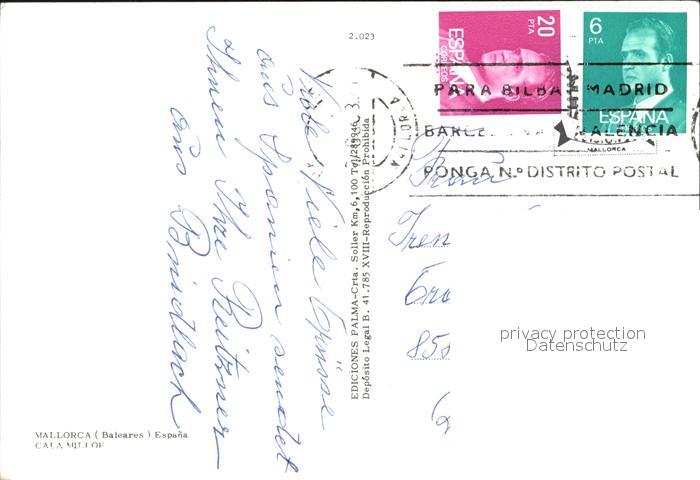 2.023
20
PTA
ESPAÑA
CORREOS
6
PTA
ESPAÑA
PARA BILBA MADRID
BARCE VALENCIA
PONGA N.º DISTRITO POSTAL
MALLORCA
Viele Viele Grüsse
aus Spanien sendet
Ihnen Ihre Reitzner
aus
EDICIONES PALMA-Crta. Soller Km,6,100 Tel/289946
Depósito Legal B. 41.785 XVIII-Reproducción Prohibida
Frau
Iren
85
privacy protection
Datenschutz
MALLORCA ( Baleares ) España
CALA MILLOR